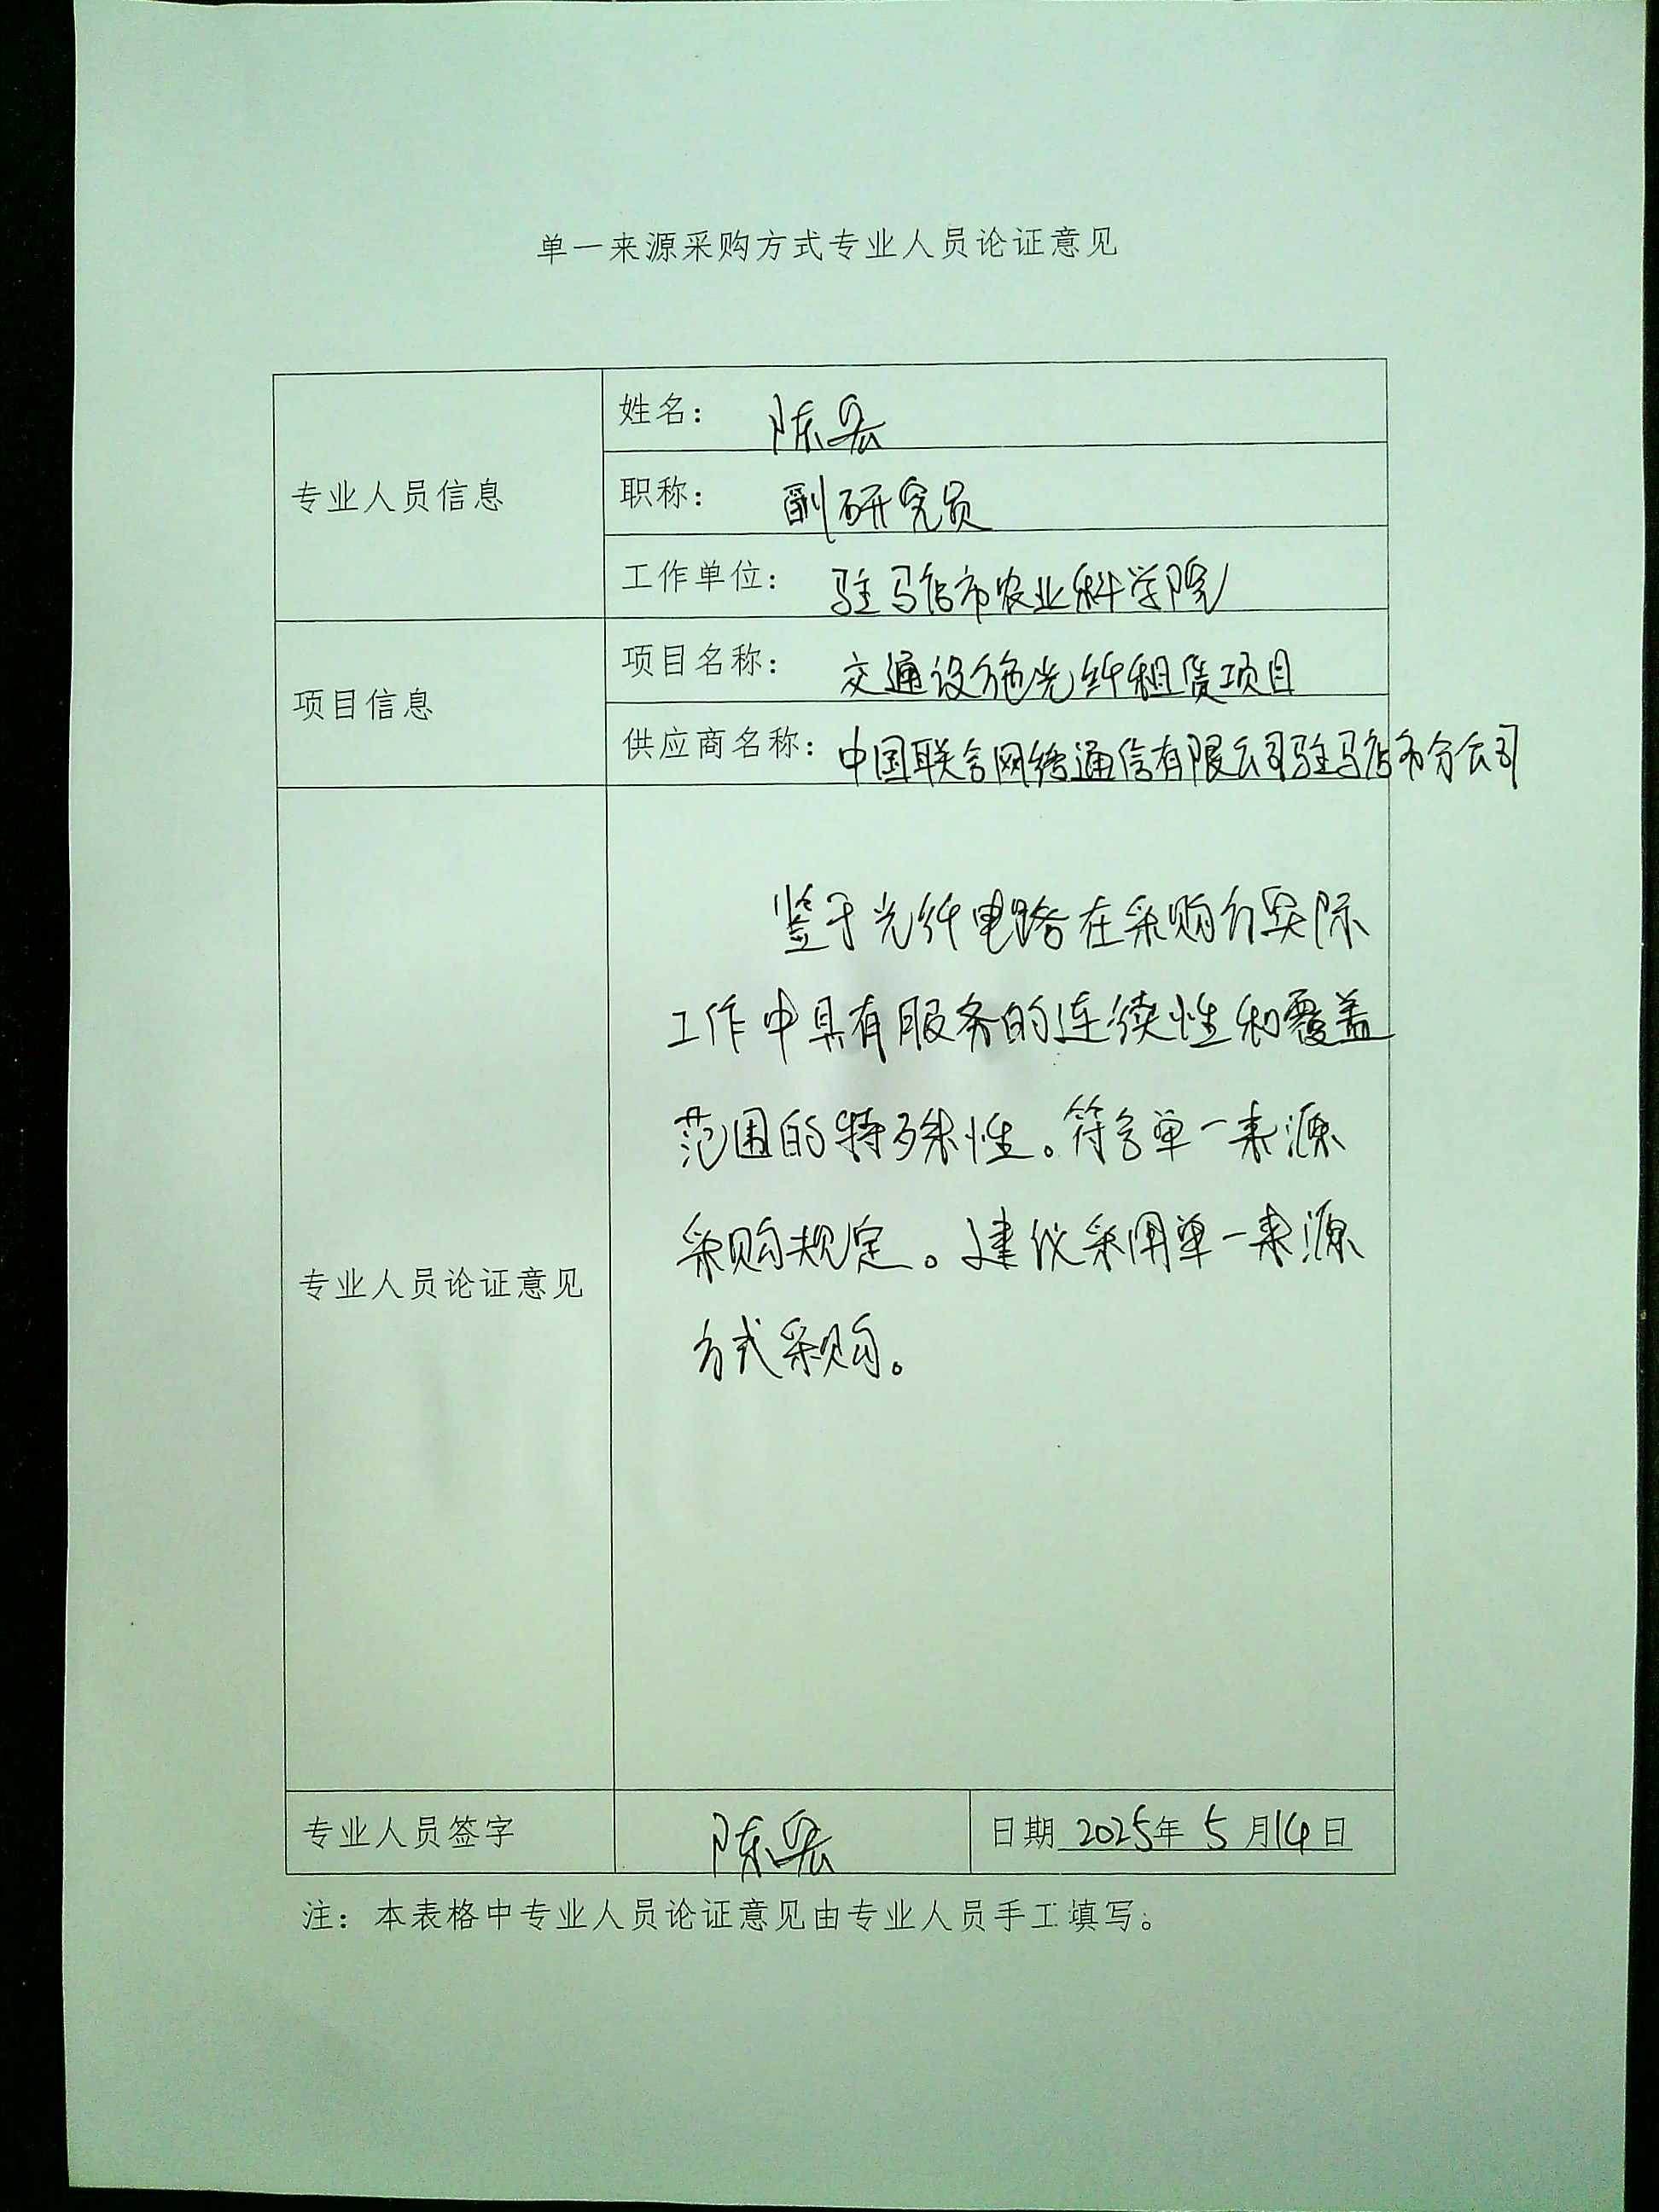 单一来源采购方式专业人员论证意见
专业人员信息
姓名： 陈宏
职称： 副研究员
工作单位： 驻马店市农业科学院
项目信息
项目名称： 交通设施光纤租赁项目
供应商名称： 中国联合网络通信有限公司驻马店市分公司
专业人员论证意见
鉴于光纤电路在采购 实际
工作中具有服务的连续性和覆盖
范围的特殊性。符合单一来源
采购规定。建议采用单一来源
方式采购。
专业人员签字 陈宏 日期 2025年 5 月14日
注：本表格中专业人员论证意见由专业人员手工填写。